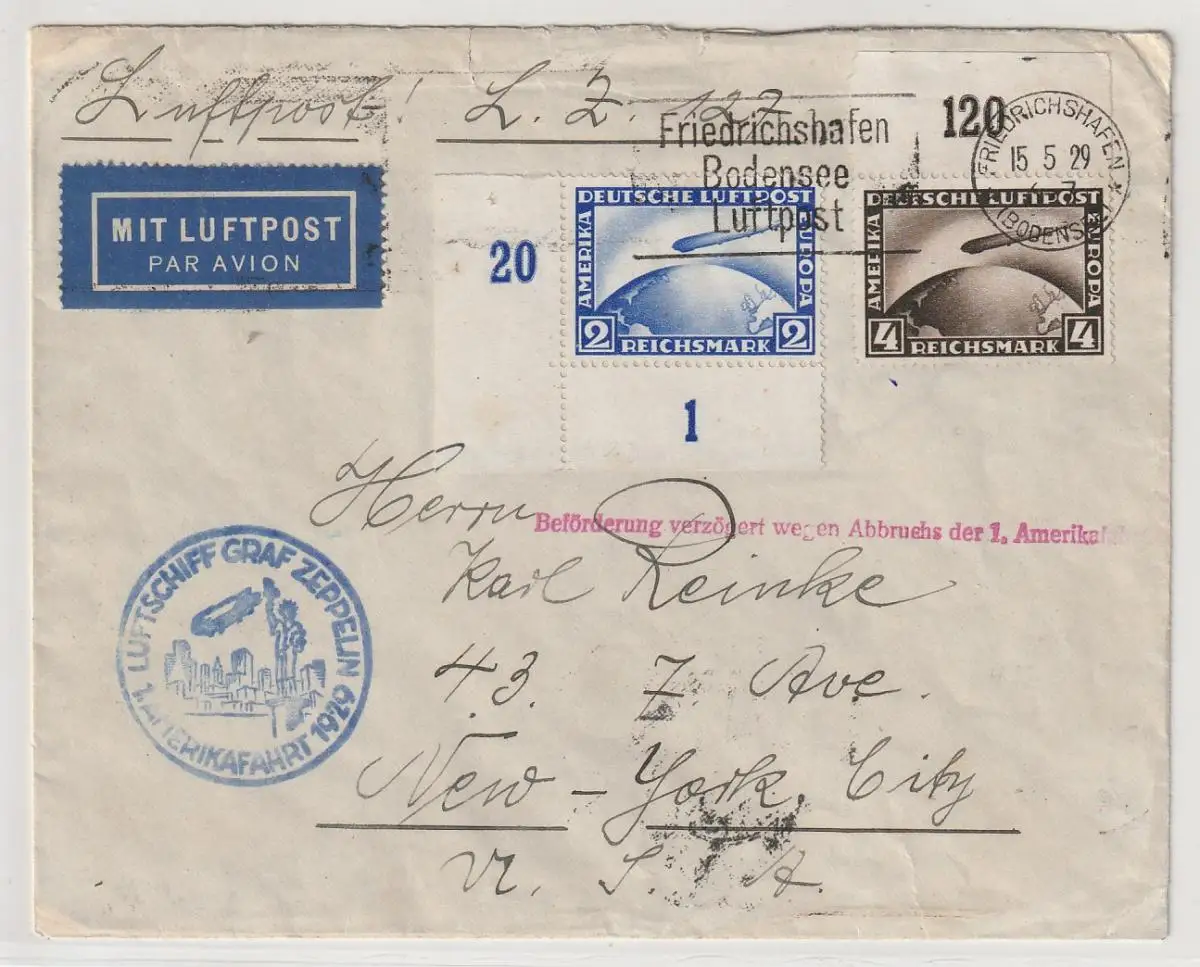 Luftpost! L. Z. 127
MIT LUFTPOST
PAR AVION
Friedrichshafen
Bodensee
Luftpost
120
FRIEDRICHSHAFEN
15 5 29
(BODENSEE)
20
DEUTSCHE LUFTPOST
AMERIKA
EUROPA
2 REICHSMARK 2
1
DEUTSCHE LUFTPOST
AMERIKA
EUROPA
4 REICHSMARK 4
Herrn
Beförderung verzögert wegen Abbruchs der 1. Amerikafahrt
Karl Reinke
43. 7 Ave.
New-York, City
U. S. A.
LUFTSCHIFF GRAF ZEPPELIN
1. AMERIKAFAHRT 1929